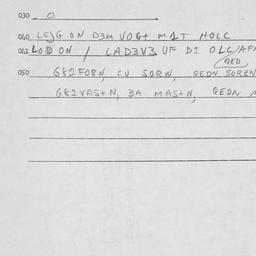 030 0
040 LEJG ON D3M VOGT M1T HOLC
041 LOD ON / LAD3V3 UF D1 OLC/AF
GED
050 GE2FORN, CU SORN, GEDN SOREN
GE2VASTN, BA MASTN, GEDN